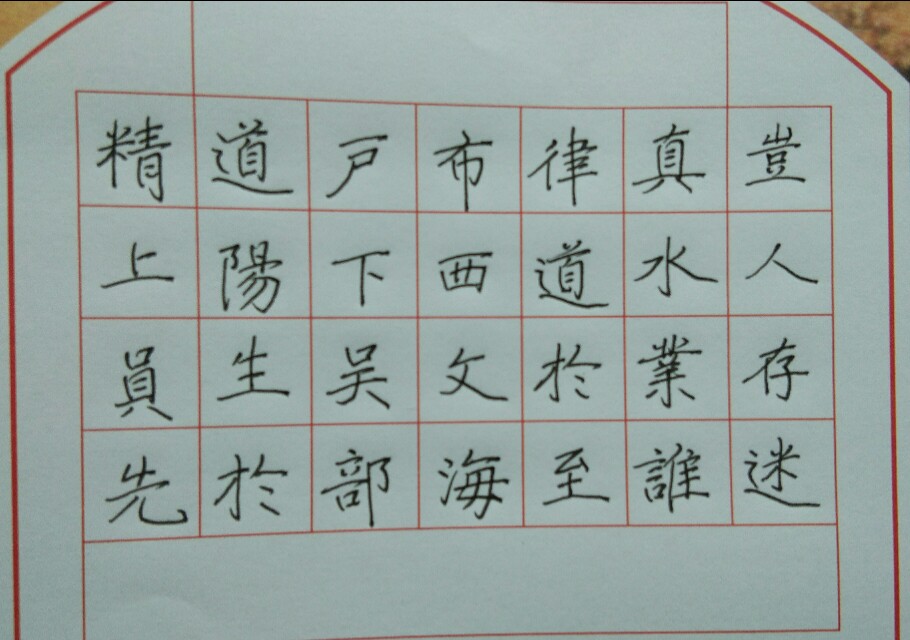 豈人存迷
真水業誰
律道於至
布西文海
戸下吴部
道陽生於
精上員先